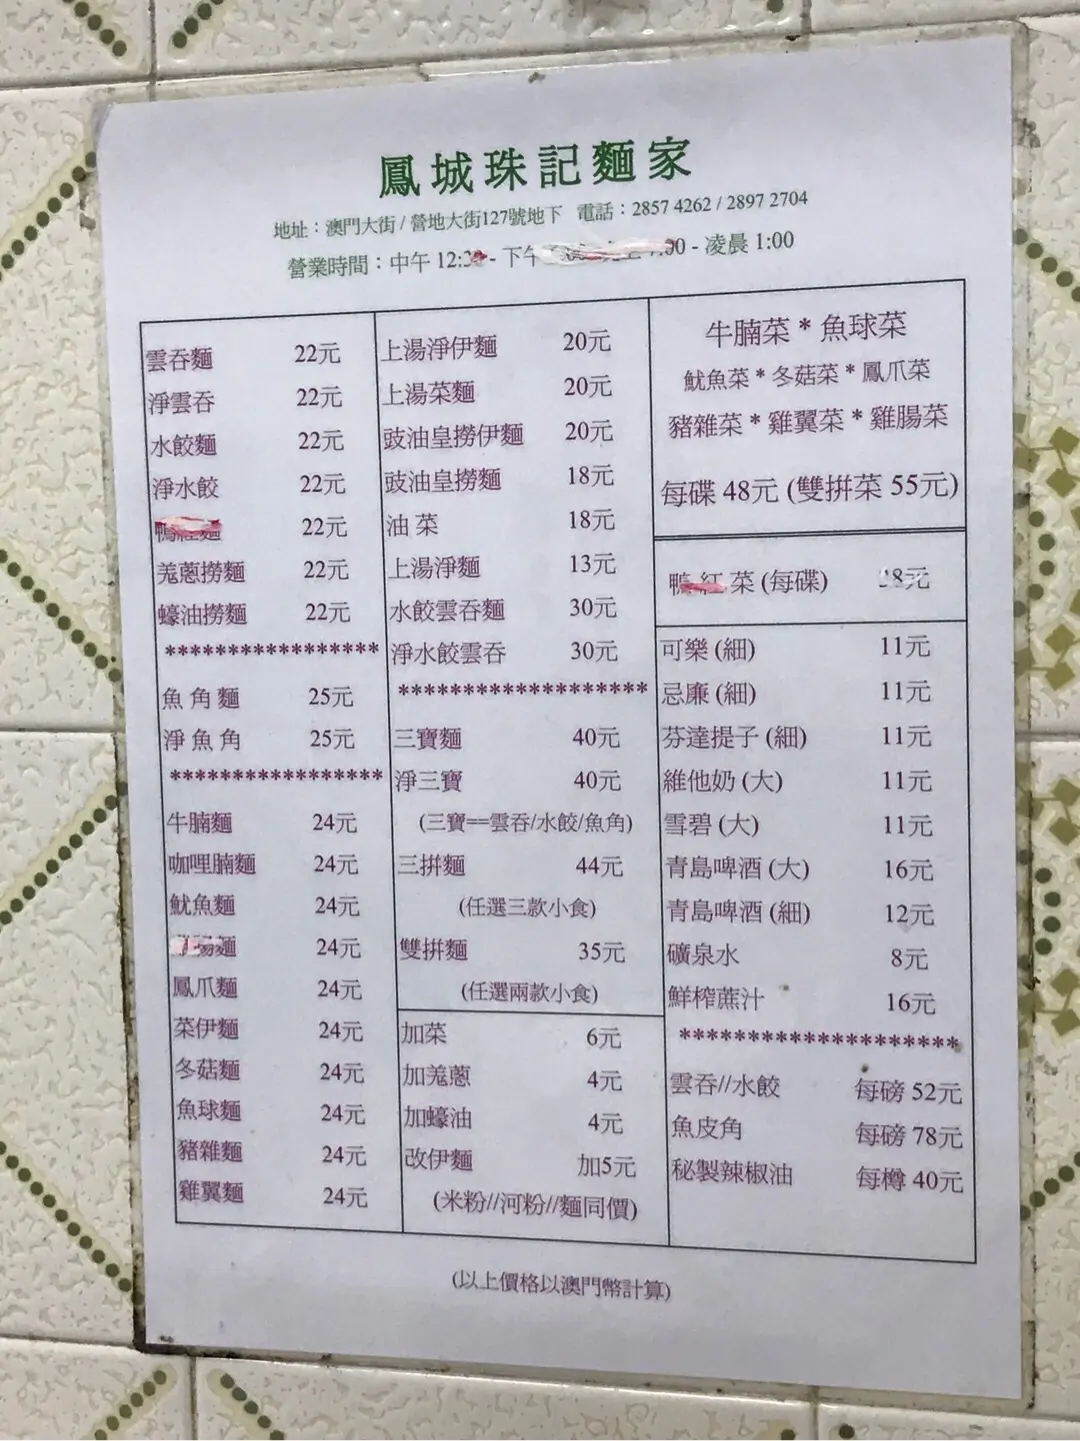 鳳城珠記麵家
地址：澳門大街 / 營地大街127號地下 電話：2857 4262 / 2897 2704
營業時間：中午 12: - 下午 :00 - 凌晨 1:00
雲吞麵 22元
淨雲吞 22元
水餃麵 22元
淨水餃 22元
麵 22元
羗蔥撈麵 22元
蠔油撈麵 22元
*****************
魚角麵 25元
淨魚角 25元
*****************
牛腩麵 24元
咖哩腩麵 24元
魷魚麵 24元
麵 24元
鳳爪麵 24元
菜伊麵 24元
冬菇麵 24元
魚球麵 24元
豬雜麵 24元
雞翼麵 24元
上湯淨伊麵 20元
上湯菜麵 20元
豉油皇撈伊麵 20元
豉油皇撈麵 18元
油菜 18元
上湯淨麵 13元
水餃雲吞麵 30元
淨水餃雲吞 30元
********************
三寶麵 40元
淨三寶 40元
(三寶==雲吞/水餃/魚角)
三拼麵 44元
(任選三款小食)
雙拼麵 35元
(任選兩款小食)
加菜 6元
加羗蔥 4元
加蠔油 4元
改伊麵 加5元
(米粉//河粉//麵同價)
牛腩菜 * 魚球菜
魷魚菜 * 冬菇菜 * 鳳爪菜
豬雜菜 * 雞翼菜 * 雞腸菜
每碟 48元 (雙拼菜 55元)
鴨紅菜 (每碟) 8元
可樂 (細) 11元
忌廉 (細) 11元
芬達提子 (細) 11元
維他奶 (大) 11元
雪碧 (大) 11元
青島啤酒 (大) 16元
青島啤酒 (細) 12元
礦泉水 8元
鮮榨蔗汁 16元
********************
雲吞//水餃 每磅 52元
魚皮角 每磅 78元
秘製辣椒油 每樽 40元
(以上價格以澳門幣計算)